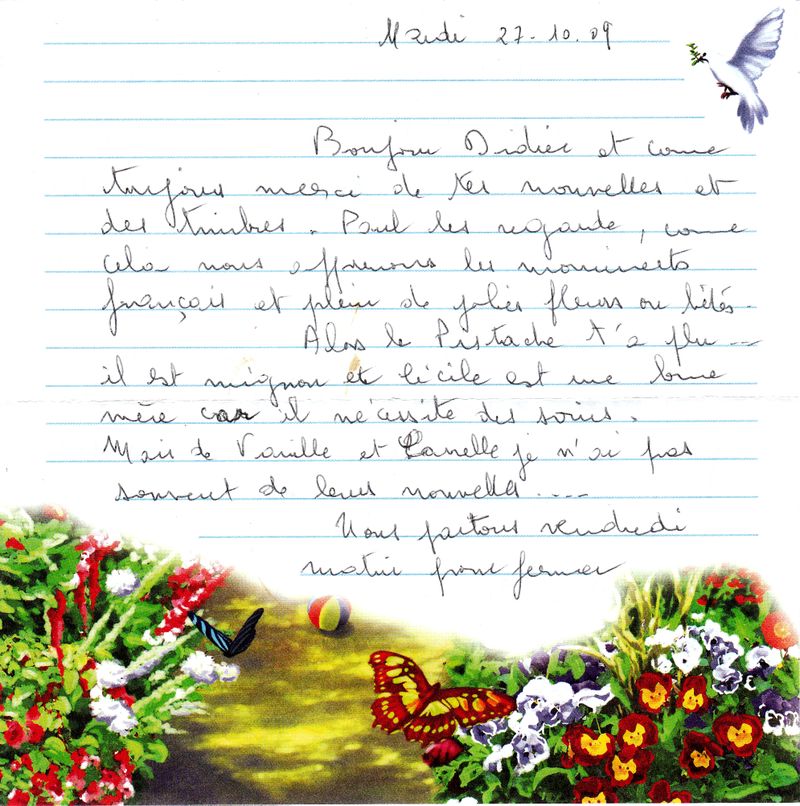 Mardi 27.10.09
Bonjour Didier et come
toujours merci de tes nouvelles et
des timbres. Paul les regarde, come
cela nous apprenons les monuments
français et plein de jolies fleurs ou bêtes.
Alors le Pistache t'a plu ...
il est mignon et Cécile est une bone
mère car il nécessite des soins.
Mais de Vanille et Canelle je n'ai pas
souvent de leurs nouvelles ....
Nous partons vendredi
matin pour fermer